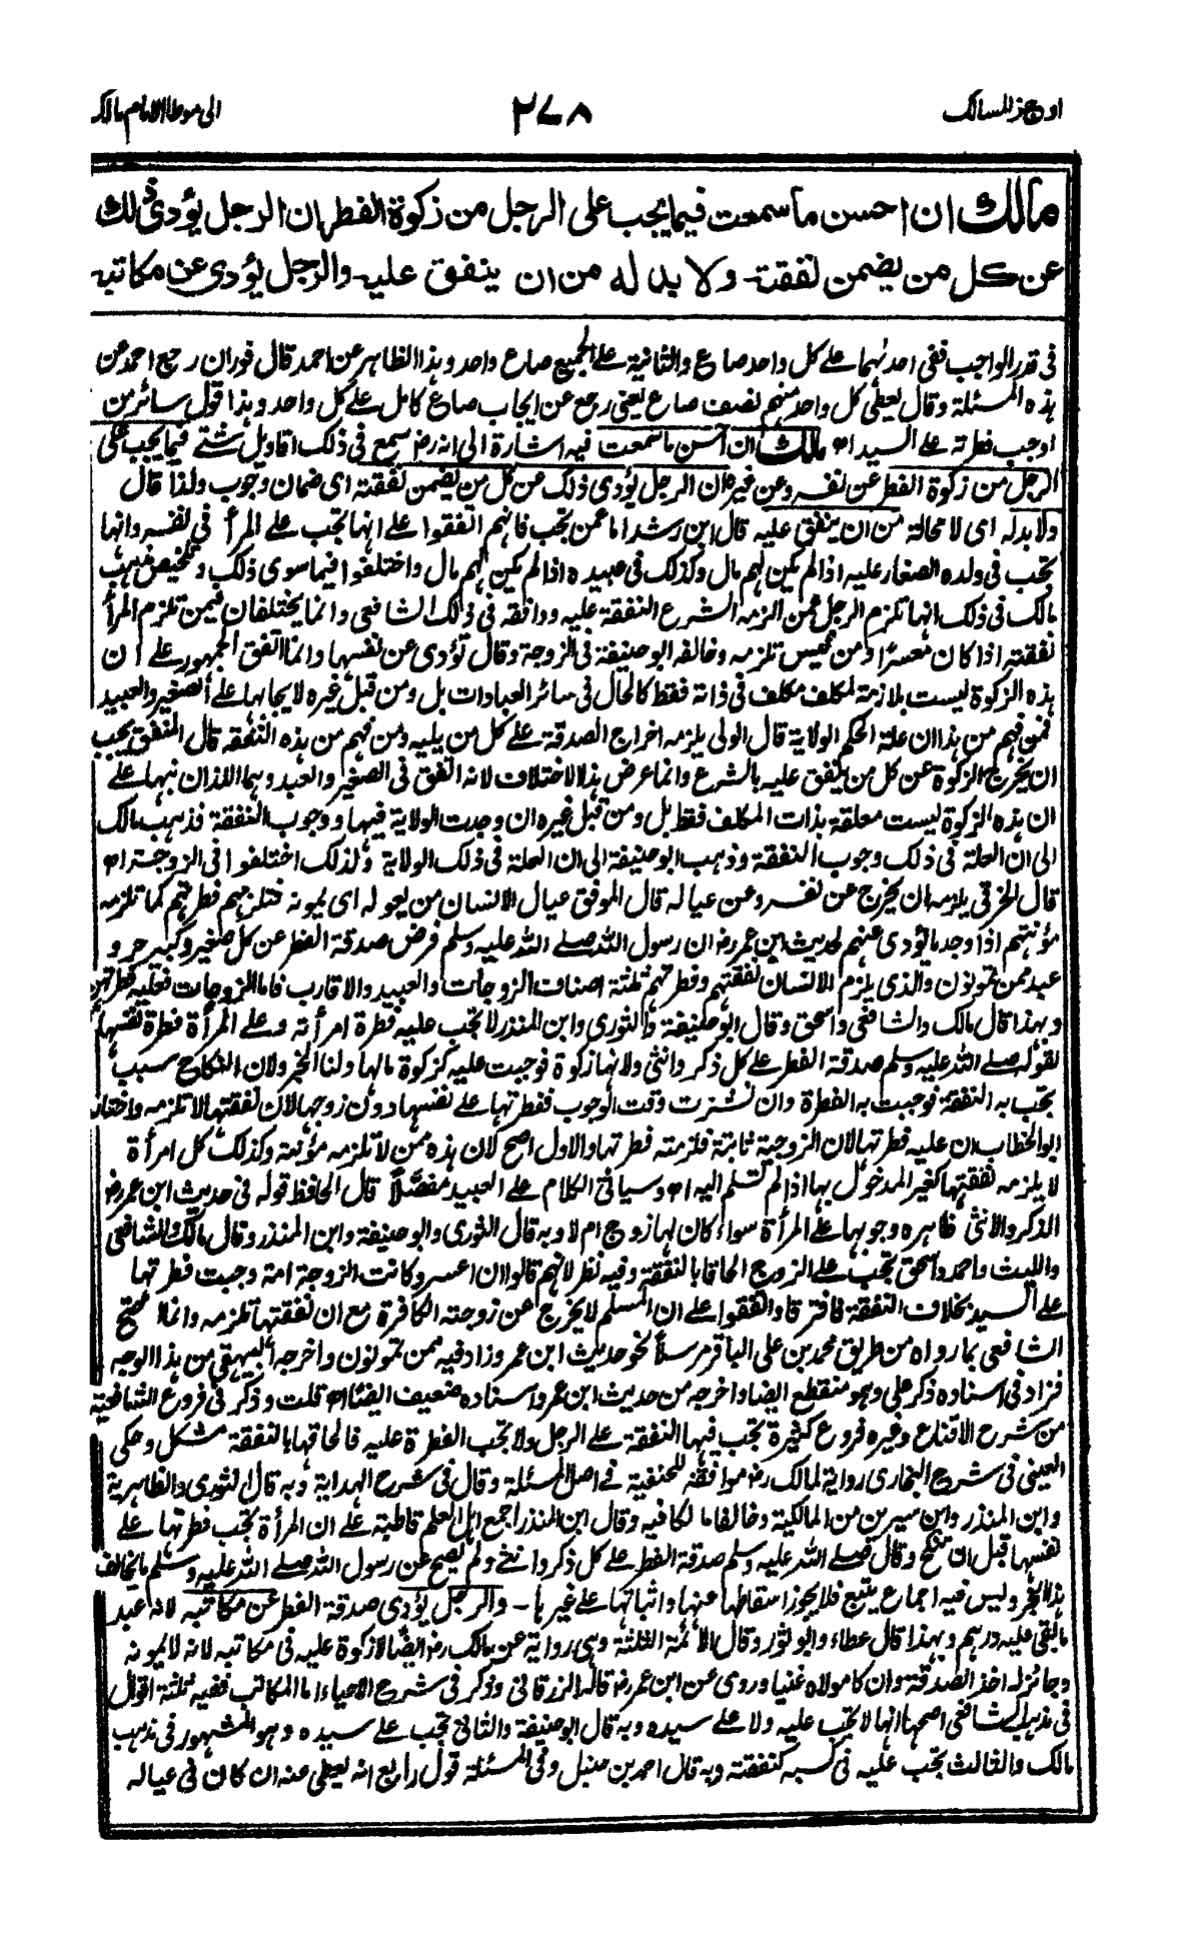 اوجز المسالك
٢٧٨
الى موطا الامام مالك
مالك ان احسن ما سمعت فيما يجب على الرجل من زكوة الفطر ان الرجل يؤدى ذلك
عن كل من يضمن نفقته ولا بد له من ان ينفق عليه والرجل يؤدى عن مكاتبه
فى قدر الواجب ففى احدٰهما على كل واحد صاع والثانية على الجميع صاع واحد وهذا الظاهر عن احمد قال فوران رجع احمد عن
هذه المسئلة وقال يعطى كل واحد منهم نصف صاع يعنى رجع عن ايجاب صاع كامل على كل واحد وهذا قول سائر من
اوجب فطرته على السيد اھ مالك ان احسن ما سمعت فيه اشارة الى انه رض سمع فى ذلك اقاويل شتى فيما يجب على
الرجل من زكوة الفطر عن نفسه وعن غيره ان الرجل يؤدى ذلك عن كل من يضمن نفقته اى ضمان وجوب ولذا قال
ولا بد له اى لا محالة من ان ينفق عليه قال ابن رشد اما عمن تجب فانهم اتفقوا على انها تجب على المرأ فى نفسه وانها
تجب فى ولده الصغار عليه اذا لم يكن لهم مال وكذلك فى عبيده اذا لم يكن لهم مال واختلفوا فيما سوى ذلك وتلخيص مذهب
مالك فى ذلك انها تلزم الرجل عمن الزمه الشرع النفقة عليه ووافقه فى ذلك الشافعى وانما يختلفان فيمن تلزم المرأ
نفقته اذا كان معسرا ومن ليس تلزمه وخالفه ابو حنيفة فى الزوجة وقال تؤدى عن نفسها وانما اتفق الجمهور على ان
هذه الزكوة ليست بلازمة لمكلف مكلف فى ذاته فقط كالحال فى سائر العبادات بل ومن قبل غيره لايجابها على الصغير والعبيد
فمن فهم من هذا ان علة الحكم الولاية قال الولى يلزمه اخراج الصدقة على كل من يليه ومن فهم من هذه النفقة قال المنفق يجب
ان يخرج الزكوة عن كل من ينفق عليه بالشرع وانما عرض هذا الاختلاف لانه اتفق فى الصغير والعبد وهما اللذان نبها على
ان هذه الزكوة ليست معلقة بذات المكلف فقط بل ومن قبل غيره ان وجدت الولاية فيها ووجوب النفقة فذهب مالك
الى ان العلة فى ذلك وجوب النفقة وذهب ابو حنيفة الى ان العلة فى ذلك الولاية ولذلك اختلفوا فى الزوجة اھ
قال الخرقى يلزمه ان يخرج عن نفسه وعن عياله قال الموفق عيال الانسان من يعوله اى يمونه فتلزمهم فطرتهم كما تلزمه
مؤنتهم اذا وجد ما يؤدى عنهم لحديث ابن عمر رض ان رسول الله صلے الله عليه وسلم فرض صدقة الفطر عن كل صغير وكبير حر و
عبد ممن تمونون والذى يلزم الانسان نفقتهم وفطرتهم ثلثة اصناف الزوجات والعبيد والاقارب فاما الزوجات فعليه فطرتهن
وبهذا قال مالك والشافعى واسحق وقال ابو حنيفة والثورى وابن المنذر لا تجب عليه فطرة امرأته وعلى المرأة فطرة نفسها
لقوله صلے الله عليه وسلم صدقة الفطر على كل ذكر وانثى ولانها زكوة فوجبت عليه كزكوة مالها ولنا الخبر ولان النكاح سبب
تجب به النفقة فوجبت به الفطرة وان نشزت وقت الوجوب ففطرتها على نفسها دون زوجها لان نفقتها لا تلزمه واختار
ابو الخطاب ان عليه فطرتها لان الزوجية ثابتة فلزمته فطرتها والاول اصح لان هذه ممن لا تلزمه مؤنته وكذلك كل امرأة
لا يلزمه نفقتها كغير المدخول بها اذا لم تسلم اليه اھ وسياتى الكلام على العبيد مفصلا قال الحافظ قوله فى حديث ابن عمر رض
الذكر والانثى ظاهره وجوبها على المرأة سواء كان لها زوج ام لا وبه قال الثورى وابو حنيفة وابن المنذر وقال مالك والشافعى
والليث واحمد واسحق تجب على الزوج الحاقا بالنفقة وفيه نظر لانهم قالوا ان اعسر وكانت الزوجة امة وجبت فطرتها
على السيد بخلاف النفقة فافترقا واتفقوا على ان المسلم لا يخرج عن زوجته الكافرة مع ان نفقتها تلزمه وانما احتج
الشافعى بما رواه من طريق محمد بن على الباقر مرسلا نحو حديث ابن عمر وزاد فيه ممن تمونون واخرجه البيهقى من هذا الوجه
فزاد فى اسناده ذكر على وهو منقطع ايضا واخرجه من حديث ابن عمر واسناده ضعيف ايضا اھ قلت وذكر فى فروع الشافعية
من شرح الاقناع وغيره فروع كثيرة تجب فيها النفقة على الرجل ولا تجب الفطرة عليه فالحاقها بالنفقة مشكل وحكى
العينى فى شرح البخارى رواية لمالك رض موافقة للحنفية فى اصل المسئلة وقال فى شرح الهداية وبه قال الثورى والظاهرية
وابن المنذر وابن سيرين من المالكية وخالفا مالكا فيه وقال ابن المنذر اجمع اهل العلم قاطبة على ان المرأة تجب فطرتها على
نفسها قبل ان تنكح وقال صلے الله عليه وسلم صدقة الفطر على كل ذكر وانثى ولم يصح عن رسول الله صلے الله عليه وسلم ما يخالف
هذا الخبر وليس فيه اجماع يتبع فلا يجوز اسقاطها عنها واثباتها على غيرها - والرجل يؤدى صدقة الفطر عن مكاتبه لانه عبد
ما بقى عليه درهم وبهذا قال عطاء وابو ثور وقال الائمة الثلثة وهى رواية عن مالك رض ايضا لا زكوة عليه فى مكاتبه لانه لا يمونه
وجائز له اخذ الصدقة وان كان مولاه غنيا وروى عن ابن عمر رض قاله الزرقانى وذكر فى شرح الاحياء اما المكاتب ففيه ثلثة اقوال
فى مذهب الشافعى اصحها انها لا تجب عليه ولا على سيده وبه قال ابو حنيفة والثانى تجب على سيده وهو المشهور فى مذهب
مالك والثالث تجب عليه فى كسبه كنفقته وبه قال احمد بن حنبل وفى المسئلة قول رابع انه يعطى عنه ان كان فى عياله